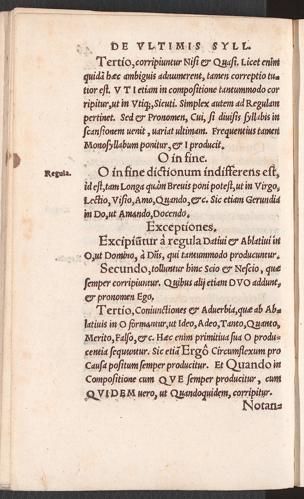 DE VLTIMIS SYLL.
Tertio, corripiuntur Nisi & Quasi. Licet enim
quidā hæc ambiguis adnumerent, tamen correptio tu-
tior est. VTI etiam in compositione tantummodo cor
ripitur, ut in Vtiq;, Sicuti. Simplex autem ad Regulam
pertinet. Sed & Pronomen, Cui, si diuisis syllabis in
scansionem uenit, uariat ultimam. Frequentius tamen
Monosyllabum ponitur, & I producit.
O in fine.
Regula.
O in fine dictionum indifferens est,
id est, tam Longa quàm Breuis poni potest, ut in Virgo,
Lectio, Visio, Amo, Quando, &c. Sic etiam Gerundia
in Do, ut Amando, Docendo.
Exceptiones.
Excipiūtur à regula Datiui & Ablatiui in
O, ut Domino, à Diis, qui tantummodo producuntur.
Secundo, tolluntur hinc Scio & Nescio, quæ
semper corripiuntur. Quibus alij etiam DVO addunt,
& pronomen Ego.
Tertio, Coniunctiones & Aduerbia, quæ ab Ab-
latiuis in O formantur, ut Ideo, Adeo, Tanto, Quanto,
Merito, Falso, &c. Hæc enim primitiua sua O produ-
centia sequuntur. Sic etiā Ergô Circumflexum pro
Causa positum semper producitur. Et Quando in
Compositione cum QVE semper producitur, cum
QVIDEM uero, ut Quandoquidem, corripitur.
Notan-